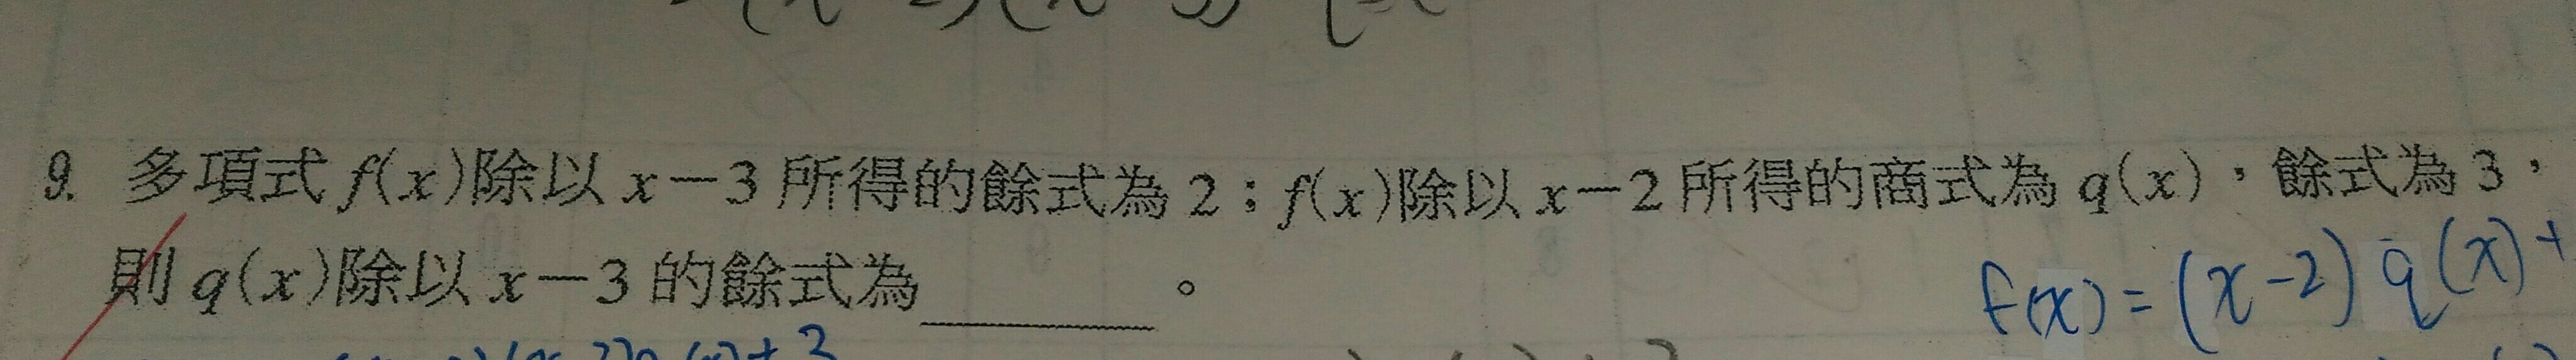 9. 多項式 f(x)除以 x－3 所得的餘式為 2；f(x)除以 x－2 所得的商式為 q(x)，餘式為 3，
則 q(x)除以 x－3 的餘式為________。
f(x) = (x-2) q(x) +